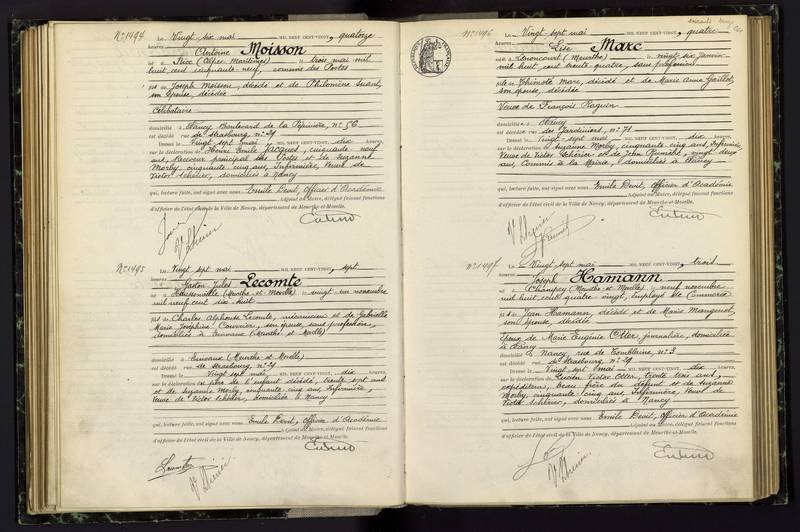 N° 1494 Le Vingt six mai MIL NEUF CENT-VINGT, quatorze
heures,
Antoine Moisson
né à Nice (Alpes Maritimes) le trois mai mil
huit cent cinquante neuf, commis des Postes
fils de Joseph Moisson, décédé et de Philomène
son épouse, décédée
Célibataire
domicilié à Nancy, Boulevard de la Pépinière, n° 56
est décédé rue de Strasbourg n° 29
Dressé le Vingt sept mai MIL NEUF CENT-VINGT, dix heures,
sur la déclaration de Henri Emile Jacquot, cinquante neuf
ans, Receveur principal des Postes et de Suzanne
Morby, cinquante cinq ans, Infirmière, Veuve de
Victor Scherier, domiciliés à Nancy
qui, lecture faite, ont signé avec nous Emile Devit, Officier d'Académie
Adjoint au Maire, délégué faisant fonctions
d'officier de l'état civil de la Ville de Nancy, département de Meurthe-et-Moselle.
N° 1495 Le Vingt sept mai MIL NEUF CENT-VINGT, sept
heures,
Gaston Jules Lecomte
né à (Meurthe et Moselle) le vingt un novembre
mil neuf cent dix huit
fils de Charles Alphonse Lecomte, mécanicien et de Gabrielle
Marie Joséphine Couvrier, son épouse, sans profession,
domiciliés à (Meurthe et Moselle)
domicilié à (Meurthe et Moselle)
est décédé rue de Strasbourg n° 29
Dressé le Vingt sept mai MIL NEUF CENT-VINGT, dix heures,
sur la déclaration du père de l'enfant décédé, trente sept ans
et de Suzanne Morby, cinquante cinq ans, Infirmière,
Veuve de Victor Scherier, domiciliée à Nancy
qui, lecture faite, ont signé avec nous Emile Devit, Officier d'Académie
Adjoint au Maire, délégué faisant fonctions
d'officier de l'état civil de la Ville de Nancy, département de Meurthe-et-Moselle.
N° 1496 Le Vingt sept mai MIL NEUF CENT-VINGT, quatre
heures,
Lise Marc
née à Lenoncourt (Meurthe) le vingt six Janvier
mil huit cent trente quatre, sans profession
fille de Thimoté Marc, décédé et de Marie Anne
son épouse, décédée
Veuve de François Raguin
domiciliée à Nancy
est décédée rue des Jardiniers, n° 71
Dressé le Vingt sept mai MIL NEUF CENT-VINGT, dix heures,
sur la déclaration de Suzanne Morby, cinquante cinq ans, Infirmière,
Veuve de Victor Scherier et de Jean vingt
ans, Commis à la Mairie, domiciliés à Nancy
qui, lecture faite, ont signé avec nous Emile Devit, Officier d'Académie
Adjoint au Maire, délégué faisant fonctions
d'officier de l'état civil de la Ville de Nancy, département de Meurthe-et-Moselle.
N° 1497 Le Vingt sept mai MIL NEUF CENT-VINGT, trois
heures,
Joseph Hamann
né à Champey (Meurthe et Moselle) le neuf novembre
mil huit cent quatre vingt, Employé de Commerce
fils de Jean Hamann, décédé et de Marie
son épouse, décédée
Epoux de Marie Eugénie Otter, journalière, domiciliée
à Nancy
domicilié à Nancy, rue de Tomblaine, n° 3
est décédé rue de Strasbourg n° 29
Dressé le Vingt sept mai MIL NEUF CENT-VINGT, dix heures,
sur la déclaration de Lucien Victor Otter, trente trois ans,
expéditeur, beau frère du défunt et de Suzanne
Morby, cinquante cinq ans, Infirmière, Veuve de
Victor Scherier, domiciliés à Nancy
qui, lecture faite, ont signé avec nous Emile Devit, Officier d'Académie
Adjoint au Maire, délégué faisant fonctions
d'officier de l'état civil de la Ville de Nancy, département de Meurthe-et-Moselle.